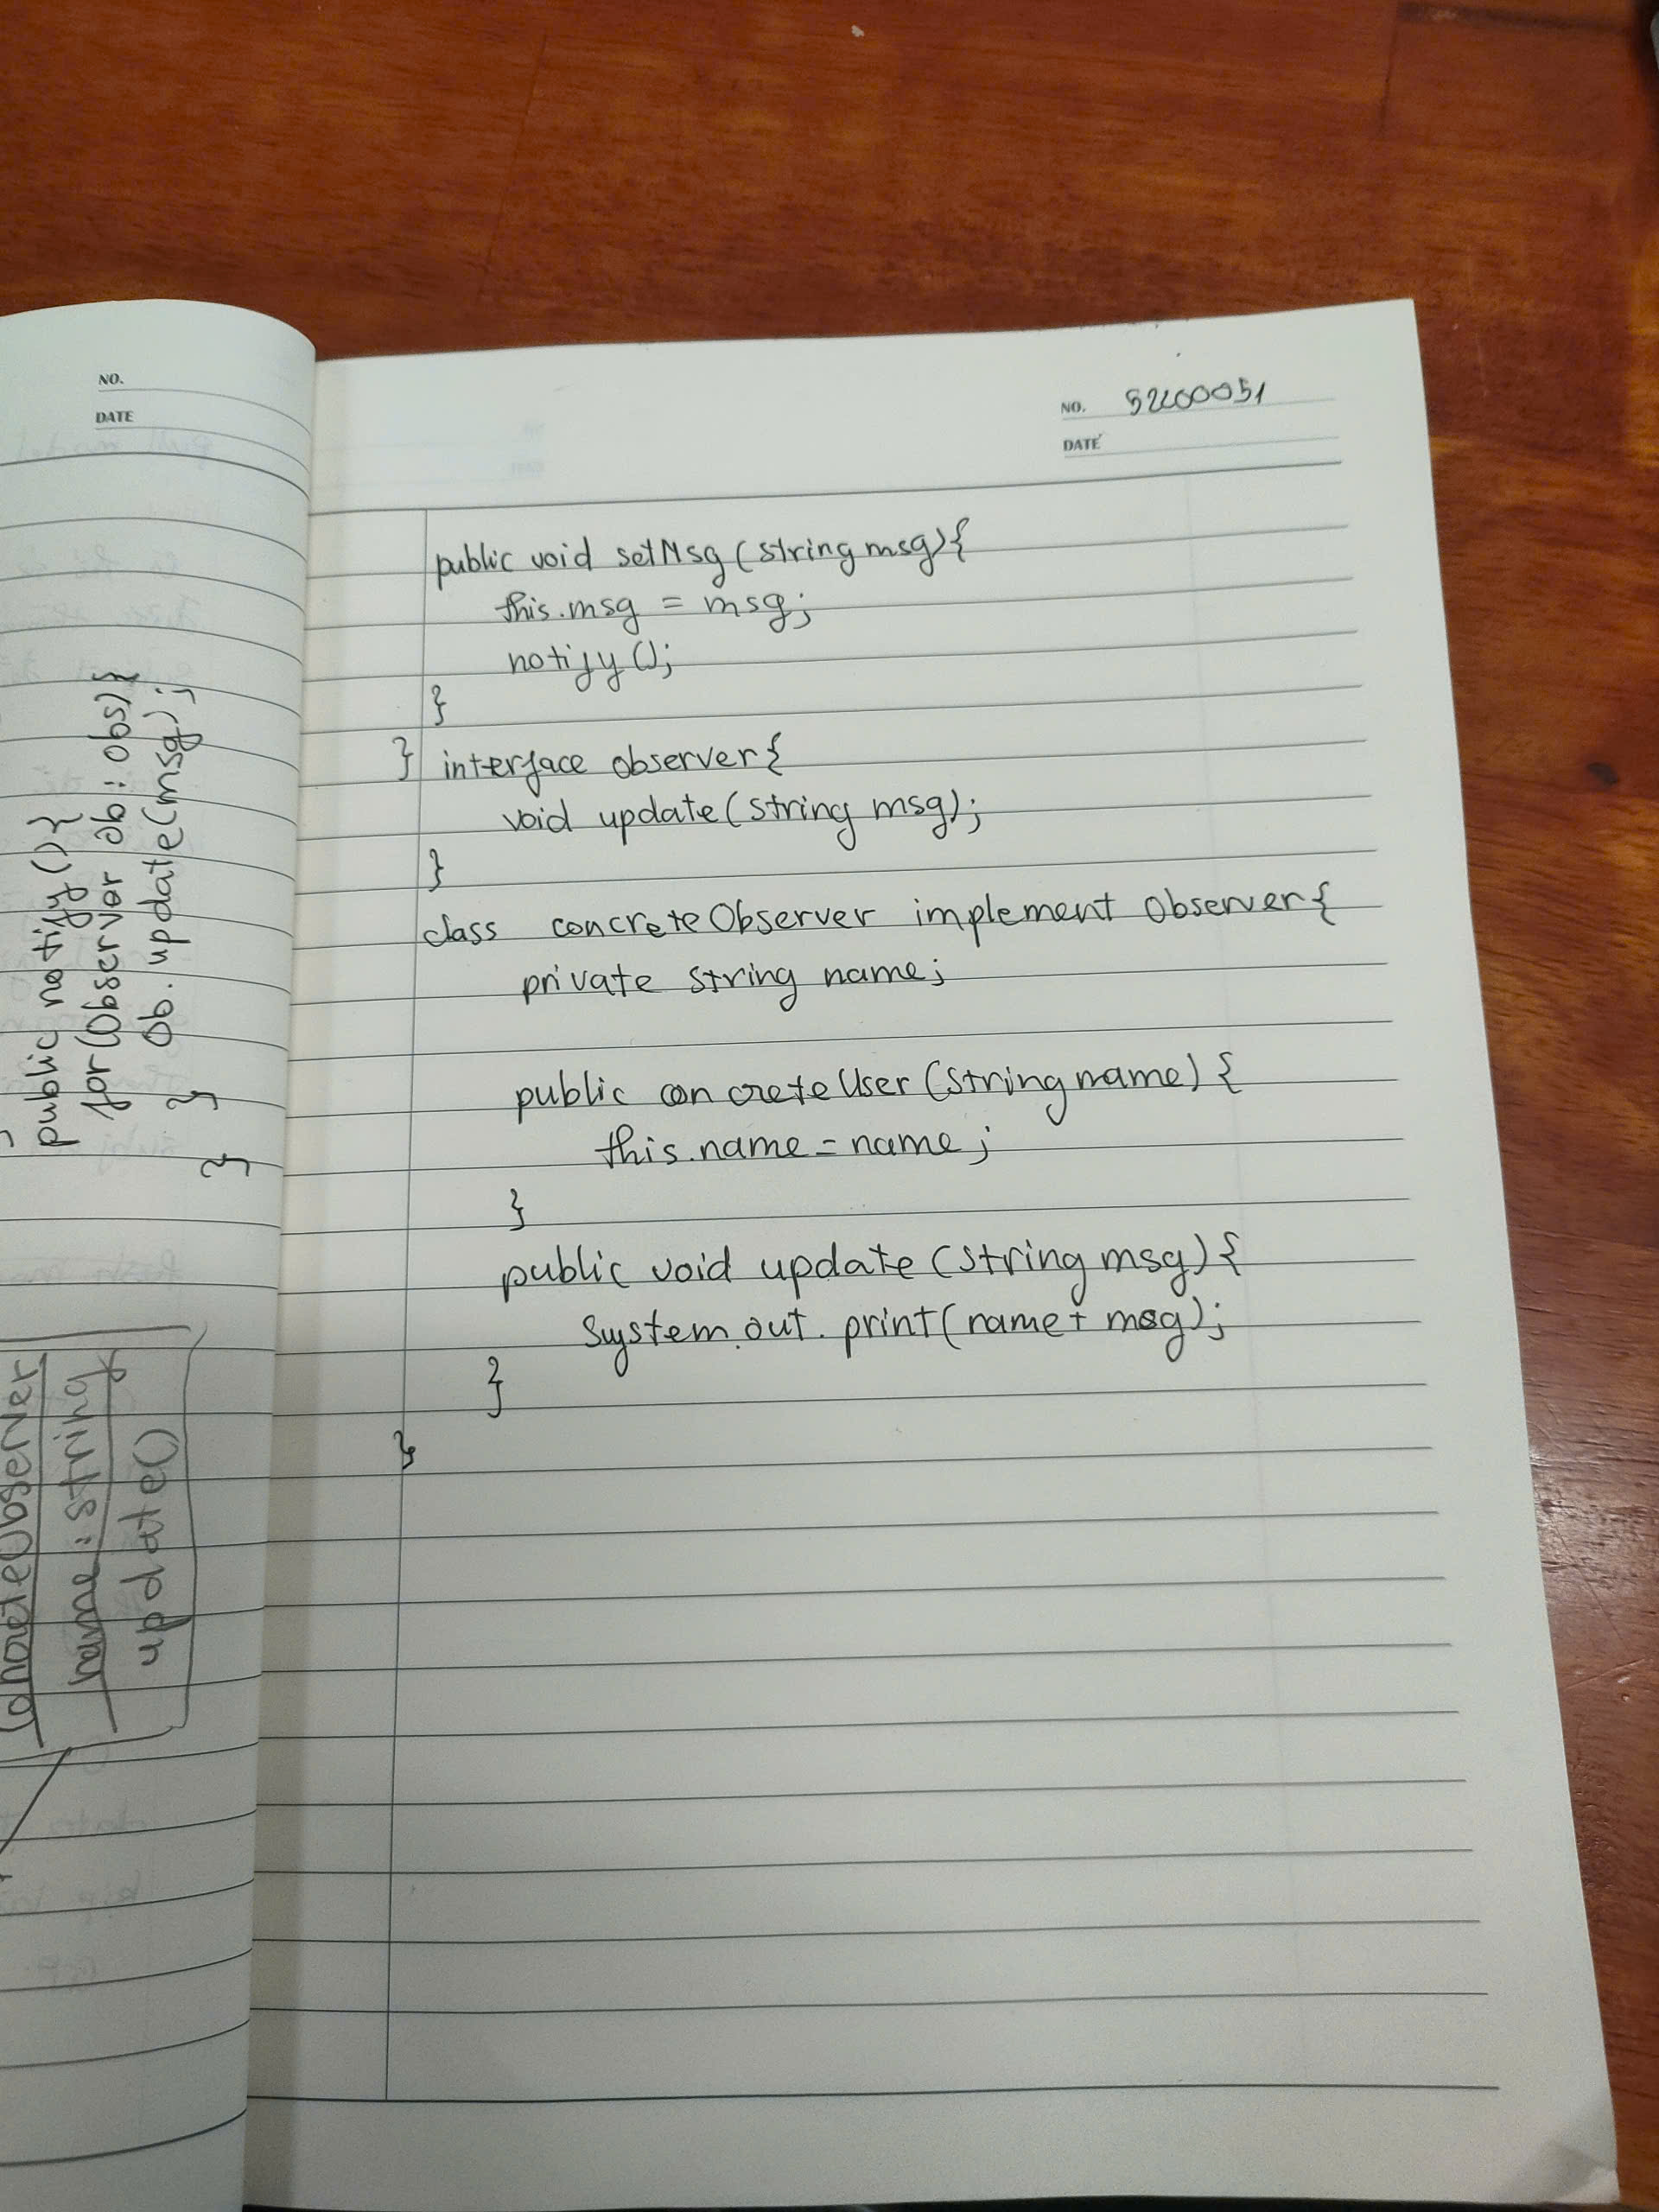 NO.
DATE
public notify(){
for(Observer ob : obs){
ob.update(msg);
}
}
name : string
update()
NO. 52200051
DATE
public void setMsg(string msg){
this.msg = msg;
notify();
}
} interface observer{
void update(string msg);
}
class concreteObserver implement Observer{
private string name;
public concreteUser(string name){
this.name = name;
}
public void update(string msg){
system.out.print(name + msg);
}
}